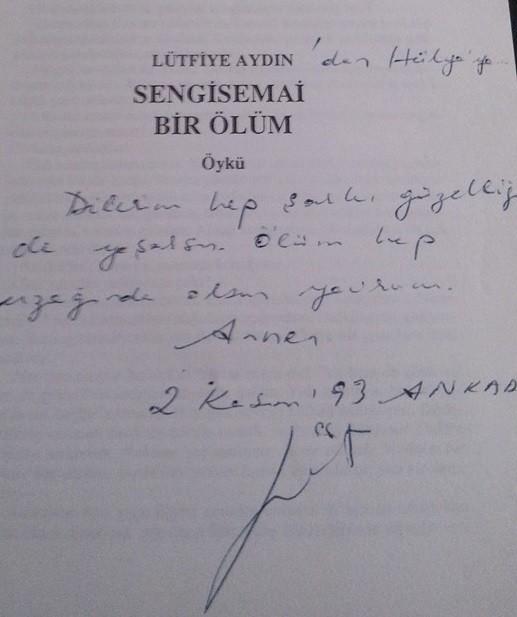 LÜTFİYE AYDIN 'dan Hülya'ya...
SENGİSEMAİ
BİR ÖLÜM
Öykü
Dilerim hep şarkı güzelliğ
de yaşarsın. Ölüm hep
uzağında olsun yavrum.
Annen
2 Kasım '93 ANKAR
Lüt